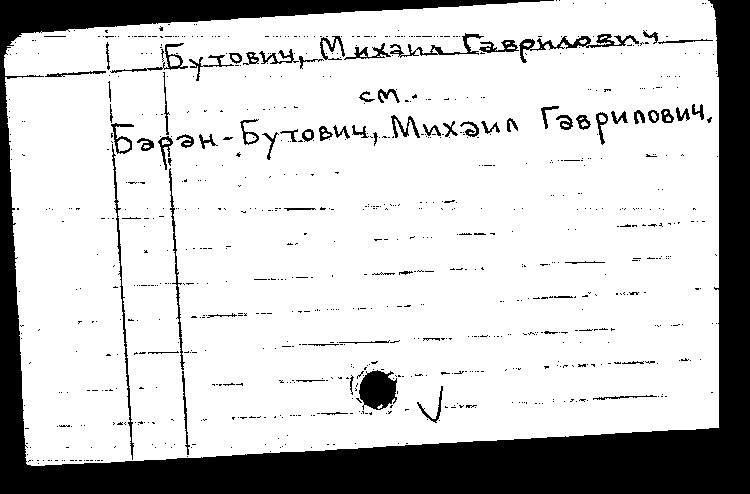 Бутович, Михаил Гаврилович
см.
Баран-Бутович, Михаил Гаврилович.